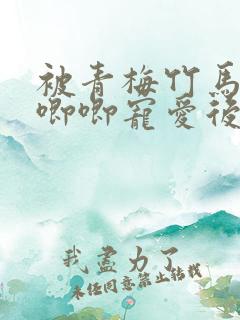 被青梅竹馬
唧唧寵愛後
我盡力了
未經同意禁止轉載